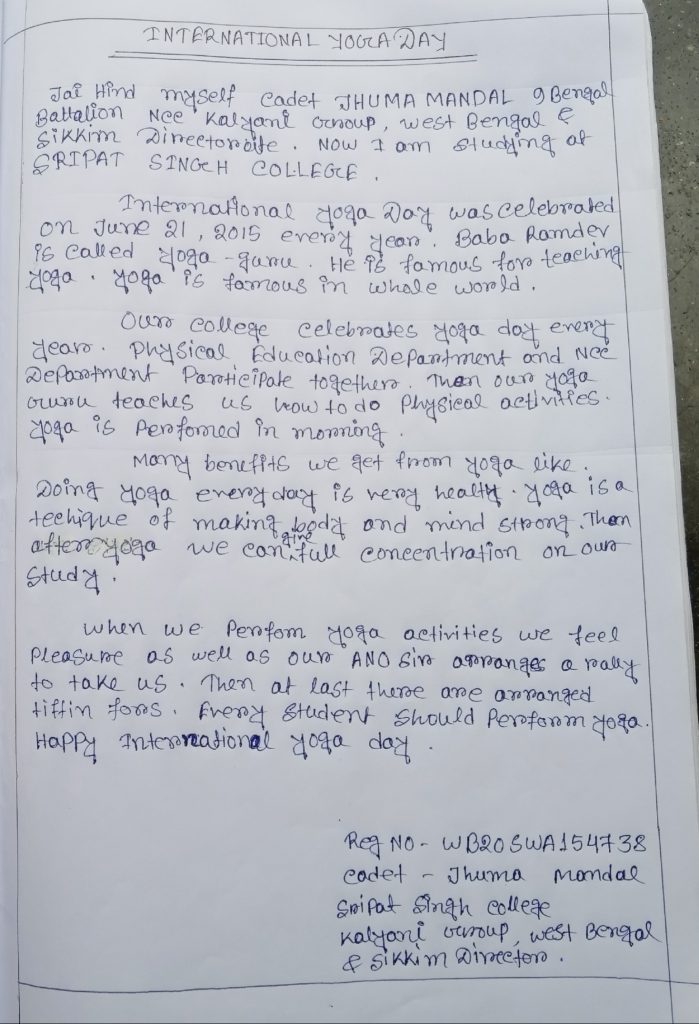 INTERNATIONAL YOGA DAY
Jai Hind myself Cadet JHUMA MANDAL 9 Bengal
Battalion Ncc Kalyani Group, West Bengal &
Sikkim Directorate. Now I am studying at
SRIPAT SINGH COLLEGE.
International yoga Day was celebrated
on June 21, 2015 every year. Baba Ramdev
is called yoga-guru. He is famous for teaching
yoga. yoga is famous in whole world.
Our college celebrates yoga day every
year. Physical Education Department and Ncc
Department Participate together. Then our yoga
Guru teaches us how to do Physical activities.
yoga is Perfomed in morning.
Many benefits we get from yoga like.
Doing yoga everyday is very healty. yoga is a
techique of making body and mind strong. Then
after yoga we can give full concentration on our
study.
When we Perfom yoga activities we feel
Pleasure as well as our ANO Sir arranges a rally
to take us. Then at last there are arranged
tiffin fors. Every Student Should Perform yoga.
Happy International yoga day.
Reg No - WB20SWA154738
Cadet - Jhuma Mandal
Sripat Singh College
Kalyani Group, West Bengal
& Sikkim Director.